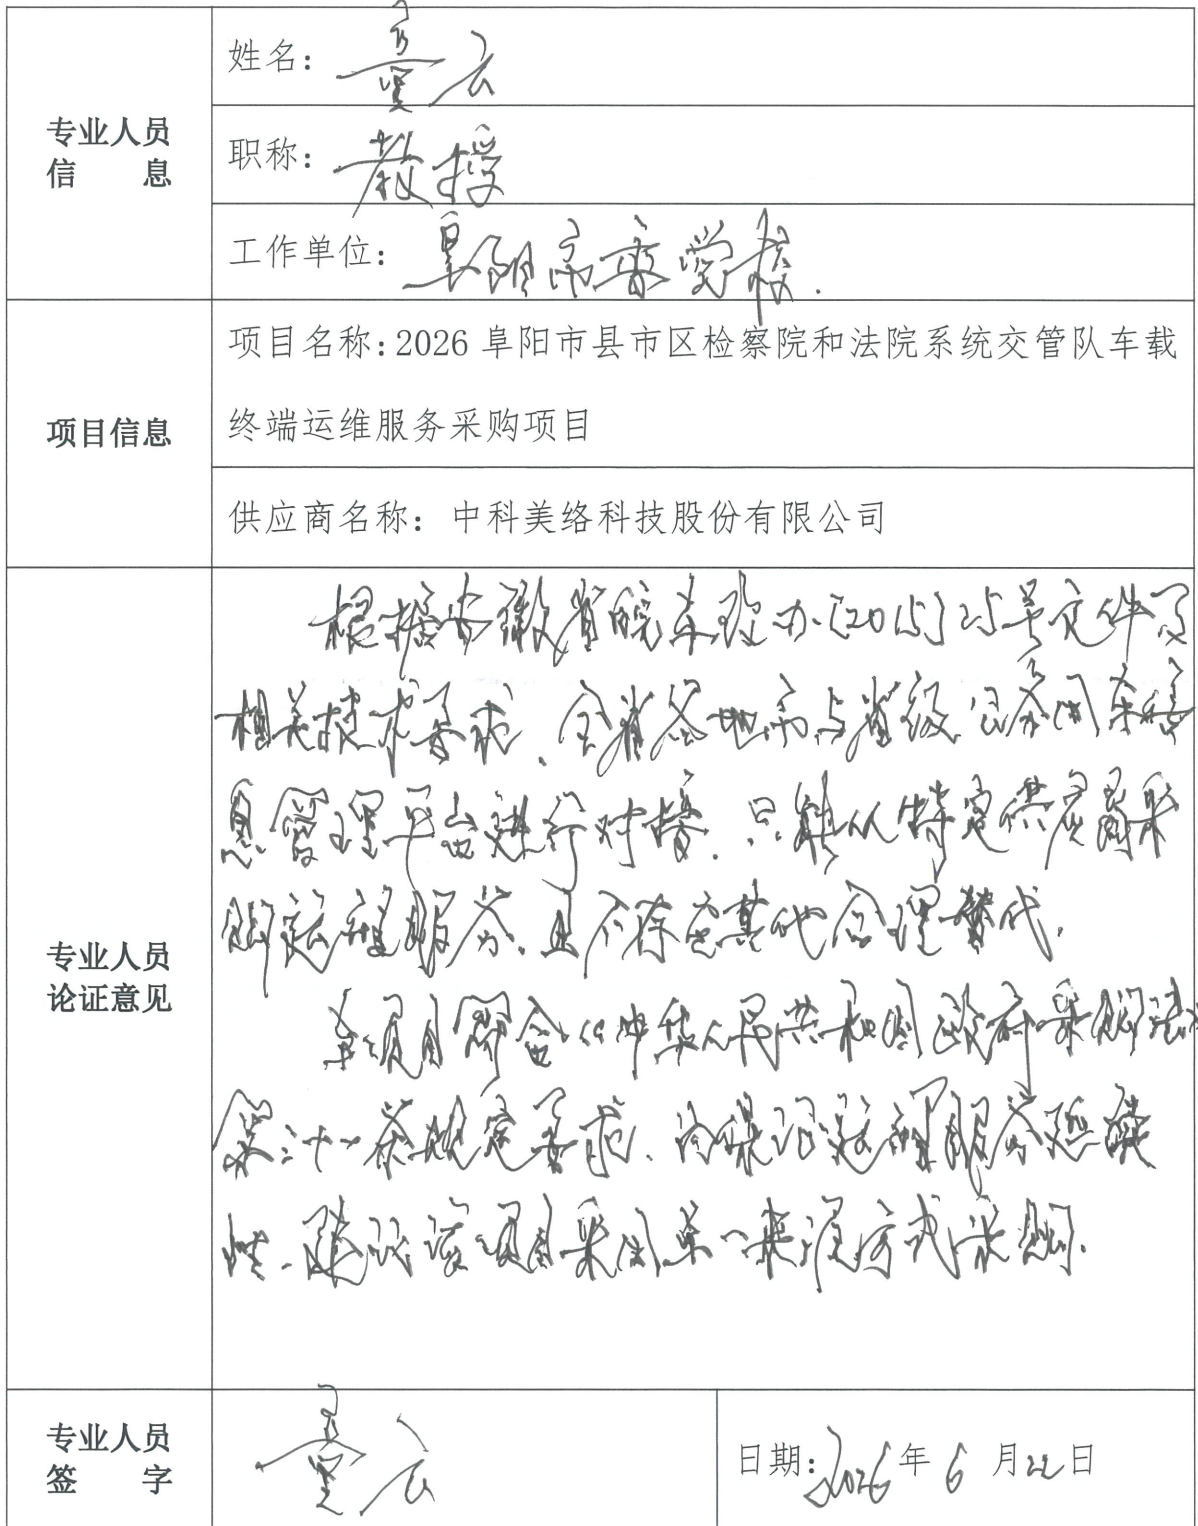 专业人员
信 息
姓名：童云
职称：教授
工作单位：阜阳市委党校.
项目信息
项目名称：2026 阜阳市县市区检察院和法院系统交管队车载
终端运维服务采购项目
供应商名称：中科美络科技股份有限公司
专业人员
论证意见
根据安徽省皖车改办〔2015〕25号文件
相关技术要求、全省各地市与省级公务用车信
息管理平台进行对接，只能从特定供应商采
购该服务，且不存在其他合理替代.
本项目符合《中华人民共和国政府采购法》
第三十一条规定要求，为保证服务延续
性、建议该项目采用单一来源方式采购.
专业人员
签 字
童云
日期：2026年6月22日